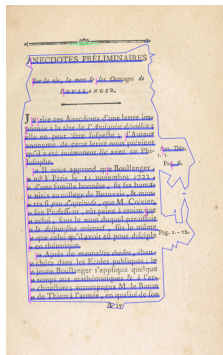 ANECDOTES PRÉLIMINAIRES
Sur la vie, la mort & les Ouvrages de
BOULLANGER.
J'extrais ces Anecdotes d'une lettre im-
primée à la tête de l'Antiquité dévoilée ;
elle ne peut être suspecte ; l'Auteur
anonyme de cette lettre nous prévient
qu'il a été intimement lié avec ce Phi-
losophe.
Il nous apprend que Boullanger,
né à Paris le 11 novembre 1722,
d'une famille honnête, fit ses huma-
nités au college de Beauvais, & mon-
tra si peu d'aptitude, que M. Crévier,
son Professeur, eût peine à croire que
celui, sous le nom duquel paraissoit
le despotisme oriental, fût le même
que celui qu'il avoit eû pour disciple
en rhétorique.
Après de mauvaises études, ébau-
chées dans les Ecoles publiques, le
jeune Boullanger s'appliqua quelque
temps aux mathématiques & à l'ar-
chitecture ; accompagna M. le Baron
de Thiers à l'armée, en qualité de son
Pag. 1.-12.